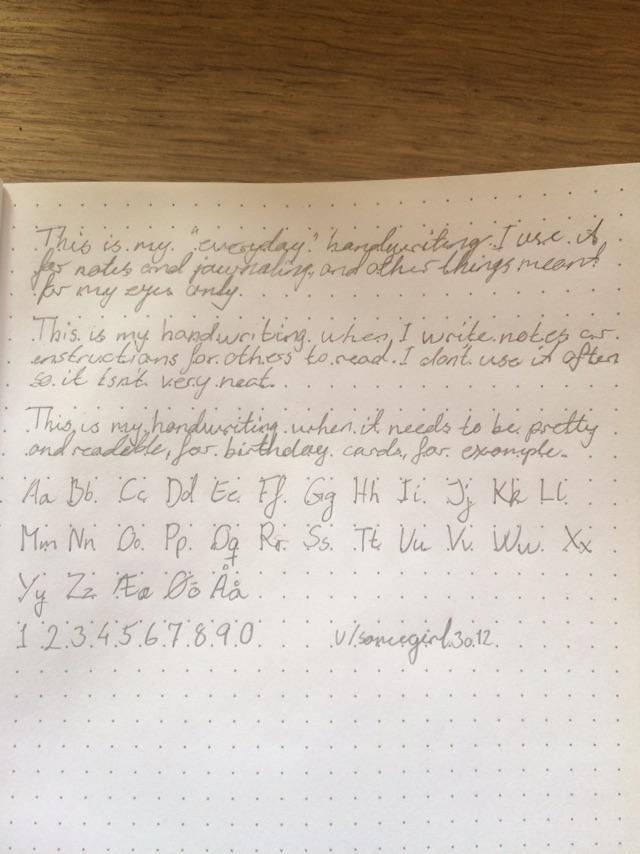 This is my "everyday" handwriting. I use it
for notes and journaling, and other things meant
for my eyes only.
This is my handwriting when I write notes or
instructions for others to read. I dont use it often
so it isnt very neat.
This is my handwriting when it needs to be pretty
and readable, for birthday cards, for example.
Aa Bb Cc Dd Ee Ff Gg Hh Ii Jj Kk Ll
Mm Nn Oo Pp Qq Rr Ss Tt Uu Vv Ww Xx
Yy Zz Ææ Øø Åå
1 2 3 4 5 6 7 8 9 0 u/somegirl3012